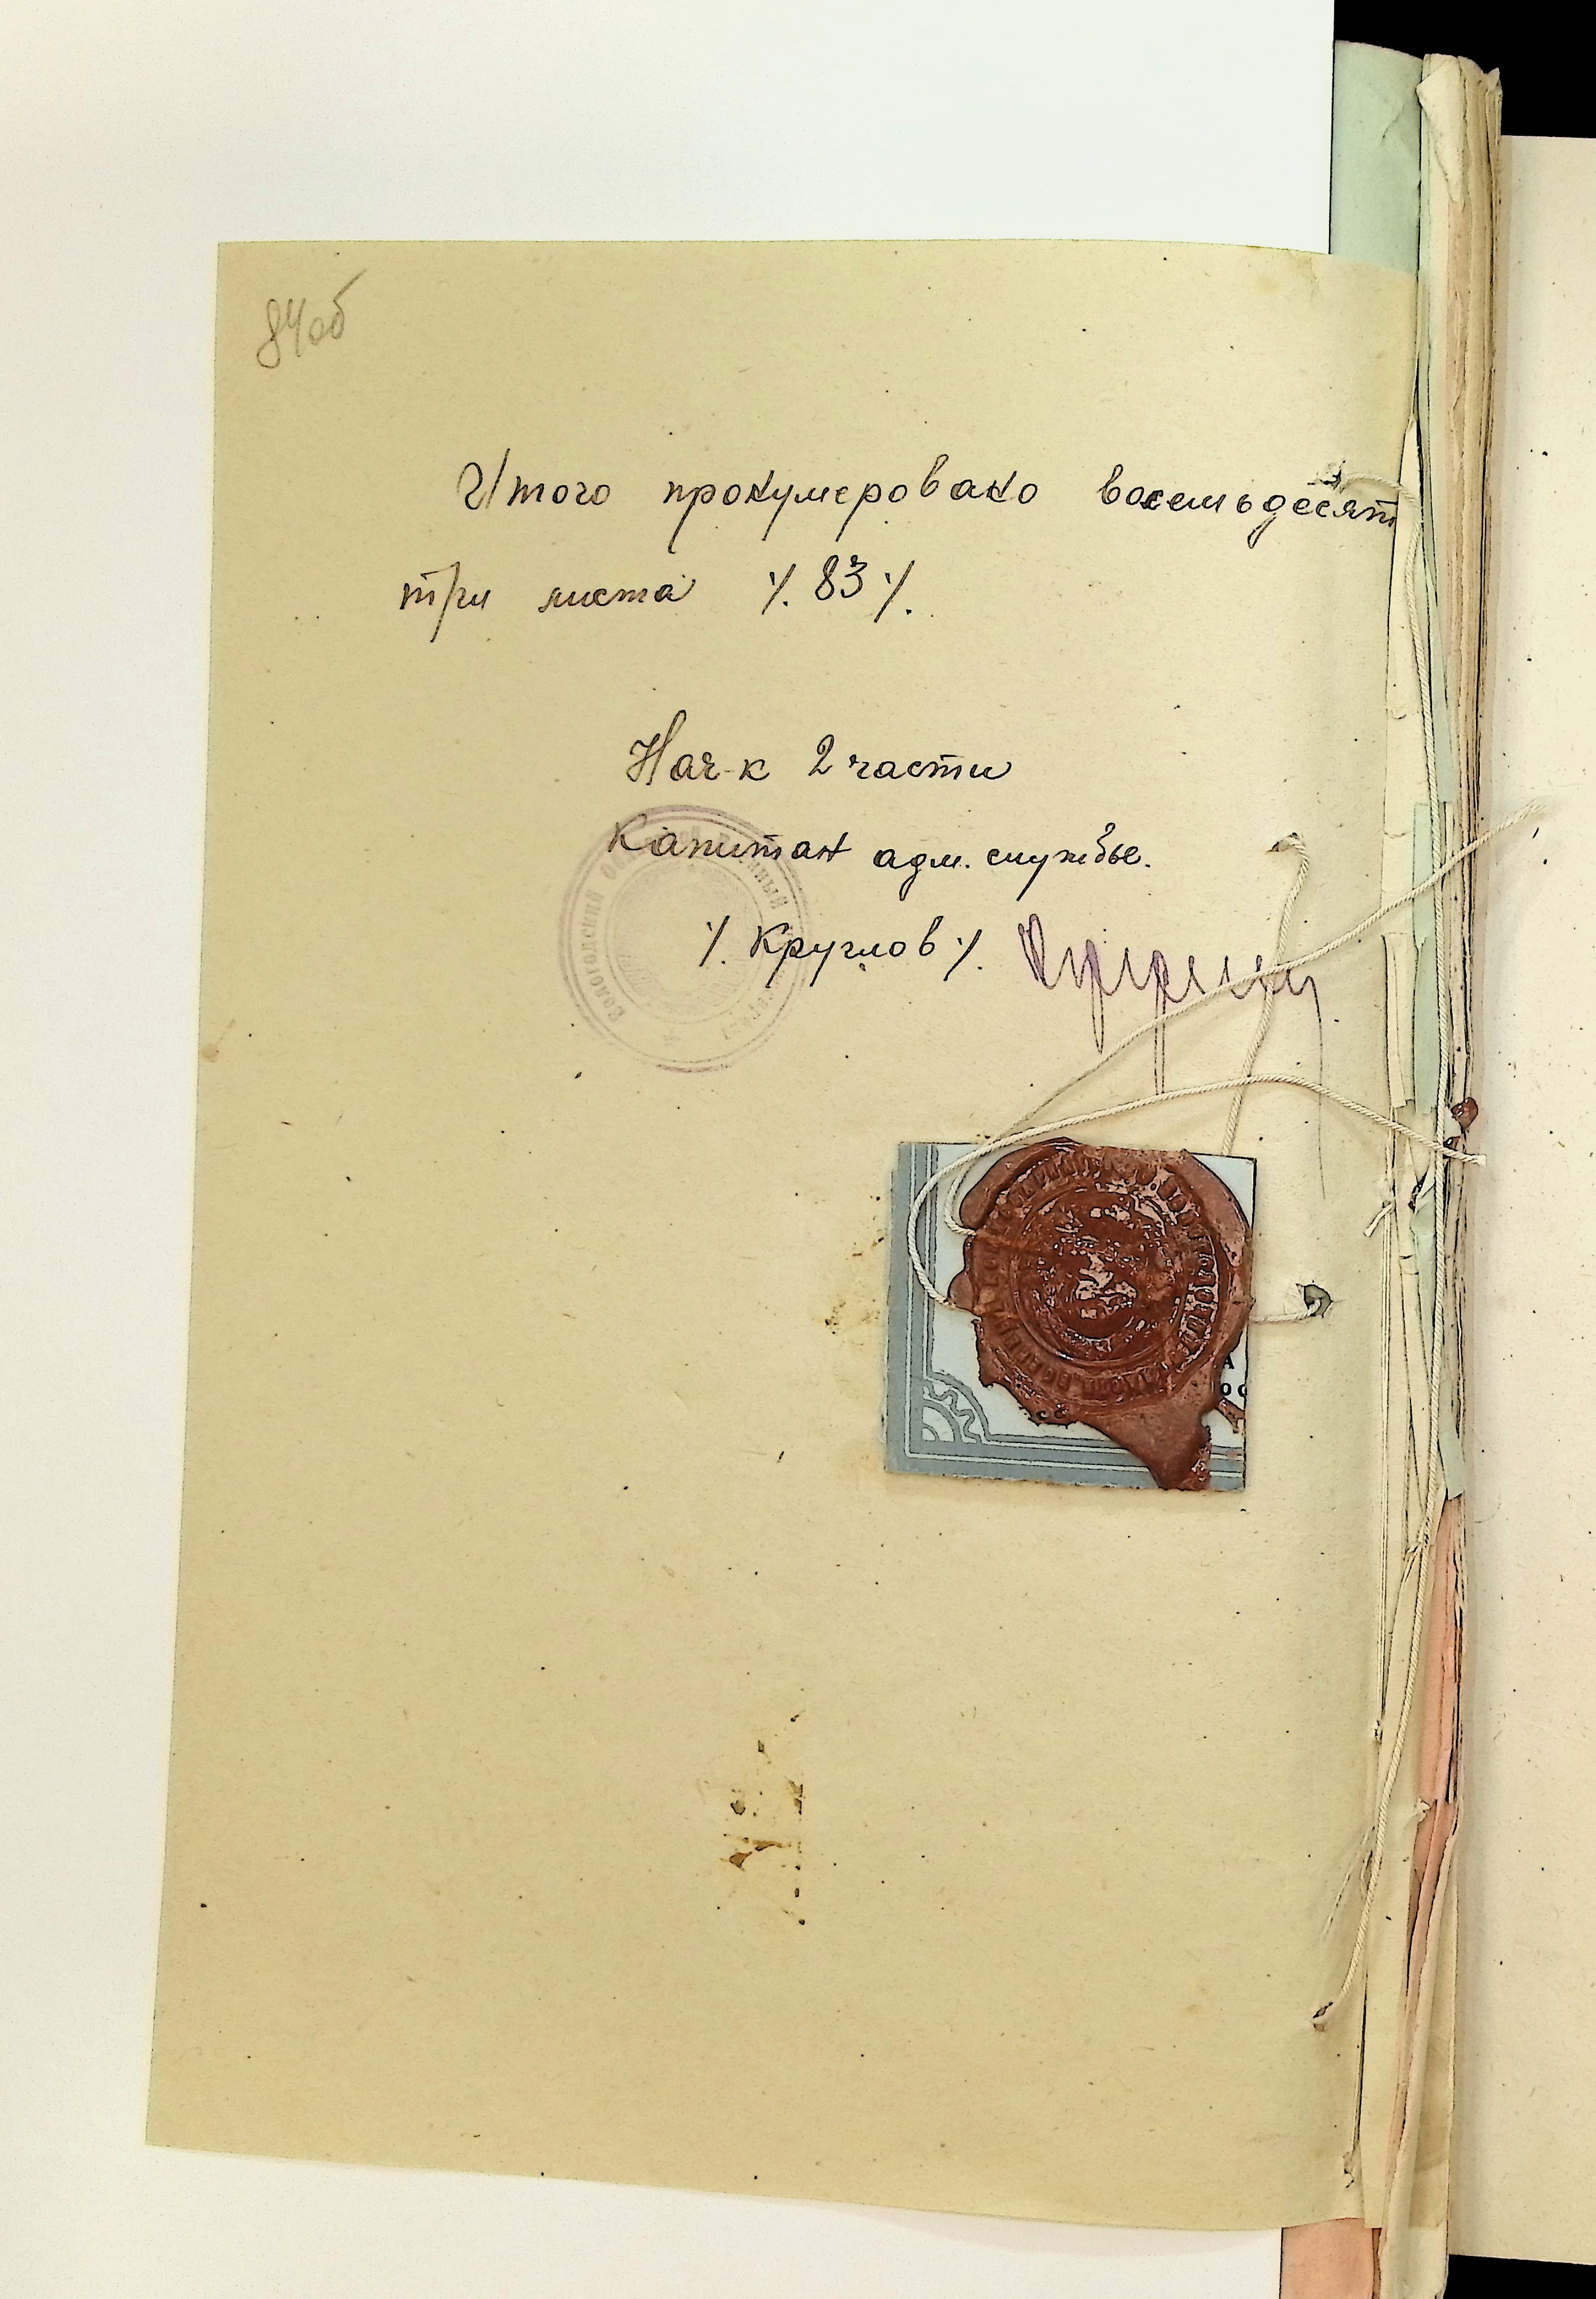 84об
Итого пронумеровано восемьдесят
три листа ⁒ 83 ⁒
Нач-к 2 части
Капитан адм. службы.
⁒ Круглов ⁒
Вологодский Военный